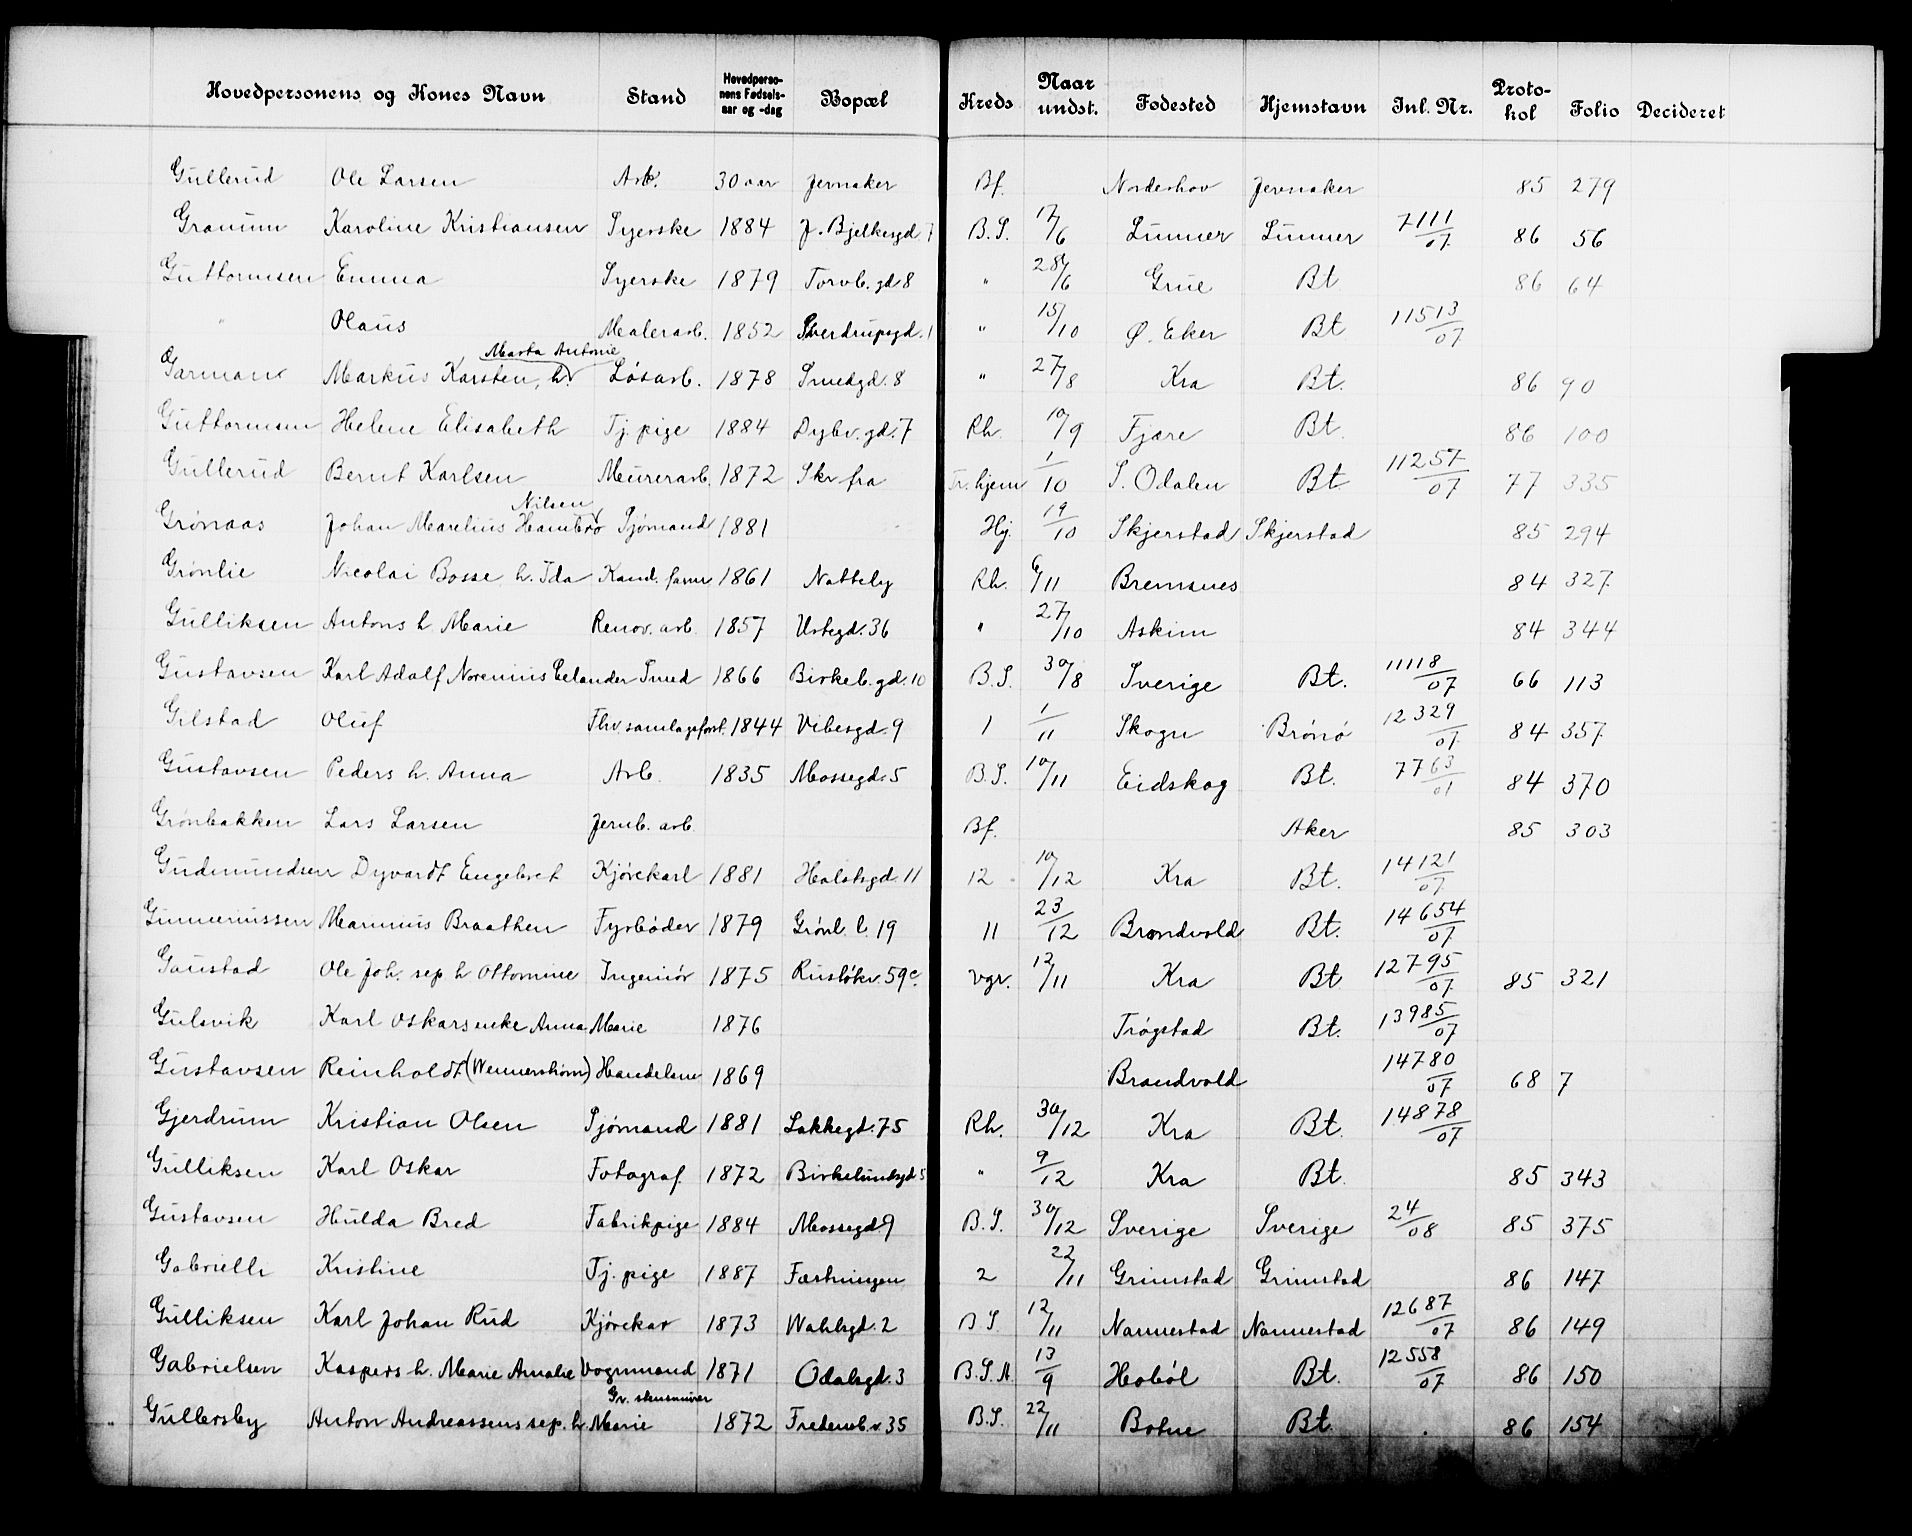 Hovedpersonens og Kones Navn Stand Hovedpersonens Fødselsaar og -dag Bopæl Kreds Naar undst. Fødested Hjemstavn Inl. Nr. Protokol Folio Decideret
Gullerud Ole Larsen Arb. 30 aar Jevnaker Bf. Norderhov Jevnaker 85 279
Granum Karoline Kristiansen Syerske 1884 J. Bjelkesgd 7 B.S. 17/6 Lunner Lunner 7111/07 86 56
Guttormsen Emma Syerske 1879 Torvb. gd 8 " 28/6 Grue Bt 86 64
" Olaus Malerarb. 1852 Sverdrupsgd. 1 " 15/10 Ø. Eker Bt 11513/07
Marta Antonie
Garmann Markus Karsten, h. Løsarb. 1878 Smedgd. 8 " 27/8 Kra Bt. 86 90
Guttormsen Helene Elisabeth Tj. pige 1884 Dybv. gd. 7 Rh. 10/9 Fjære Bt 86 100
Gullerud Bernt Karlsen Murerarb. 1872 Skr fra Tr. hjem 1/10 S. Odalen Bt 11257/07 77 335
Nilsen
Grønaas Johan Marelius Hambro Sjømand 1881 Hj. 19/10 Skjerstad Skjerstad 85 294
Grønlie Nicolai Bosse h. Ida Kand. farm 1861 Nøtteby Rh. 6/11 Bremsnes 84 327
Gulliksen Antons h Marie Renov. arb. 1857 Urtegd. 36 " 27/10 Askim 84 344
Gustavsen Karl Adolf Norenius Smed 1866 Birkeb. gd. 10 B.S. 30/8 Sverige Bt. 11118/07 66 113
Gilstad Oluf Fhv. samlagsforst. 1844 Vibesgd. 9 1 1/11 Skogn Brønø 12329/07 84 357
Gustavsen Peders h. Anna Arb. 1835 Mossegd. 5 B.S. 10/11 Eidskog Bt. 7763/01 84 370
Grønbakken Lars Larsen Jernb. arb. Bf. Aker 85 303
Gudmundsen Dyvardt Engebret Kjørekarl 1881 Holstsgd. 11 12 10/12 Kra Bt. 14121/07
Gunneriussen Marinius Braathen Fyrbøder 1879 Grønl. l. 19 11 23/12 Brandvold Bt. 14654/07
Gaustad Ole Joh. sep h Ottomine Ingeniør 1875 Rusløkv. 59c. Vgr. 12/11 Kra Bt 12795/07 85 321
Gulsvik Karl Oskars enke Anna Marie 1876 Trøgstad Bt. 13985/07
Gustavsen Reinholdt (Wennerstrøm) Handelsm 1869 Brandvold 14780/07 68 7
Gjerdrum Kristian Olsen Sjømand 1881 Lakkegd. 75 Rh. 30/12 Kra Bt. 14878/07
Gulliksen Karl Oskar Fotograf 1872 Birkelundsgd 5 " 9/12 Kra Bt. 85 343
Gustavsen Hulda Bred Fabrikpige 1884 Mossegd 9 B.S. 30/12 Sverige Sverige 24/08 85 375
Gabrielli Kristine Tj. pige 1887 Fæstningen 2 22/11 Grimstad Grimstad 86 147
Gulliksen Karl Johan Rud Kjørekar 1873 Wahlsgd. 2 B.S. 12/11 Nannestad Nannestad 12687/07 86 149
Gabrielsen Kaspers h. Marie Amalie Vognmand 1871 Odalsgd. 3 B.S.A. 13/9 Hobøl Bt. 12558/07 86 150
Gullersby Anton Andreassens sep. h Marie 1872 Fredensb. v. 35 B.S. 22/11 Botne Bt 86 154